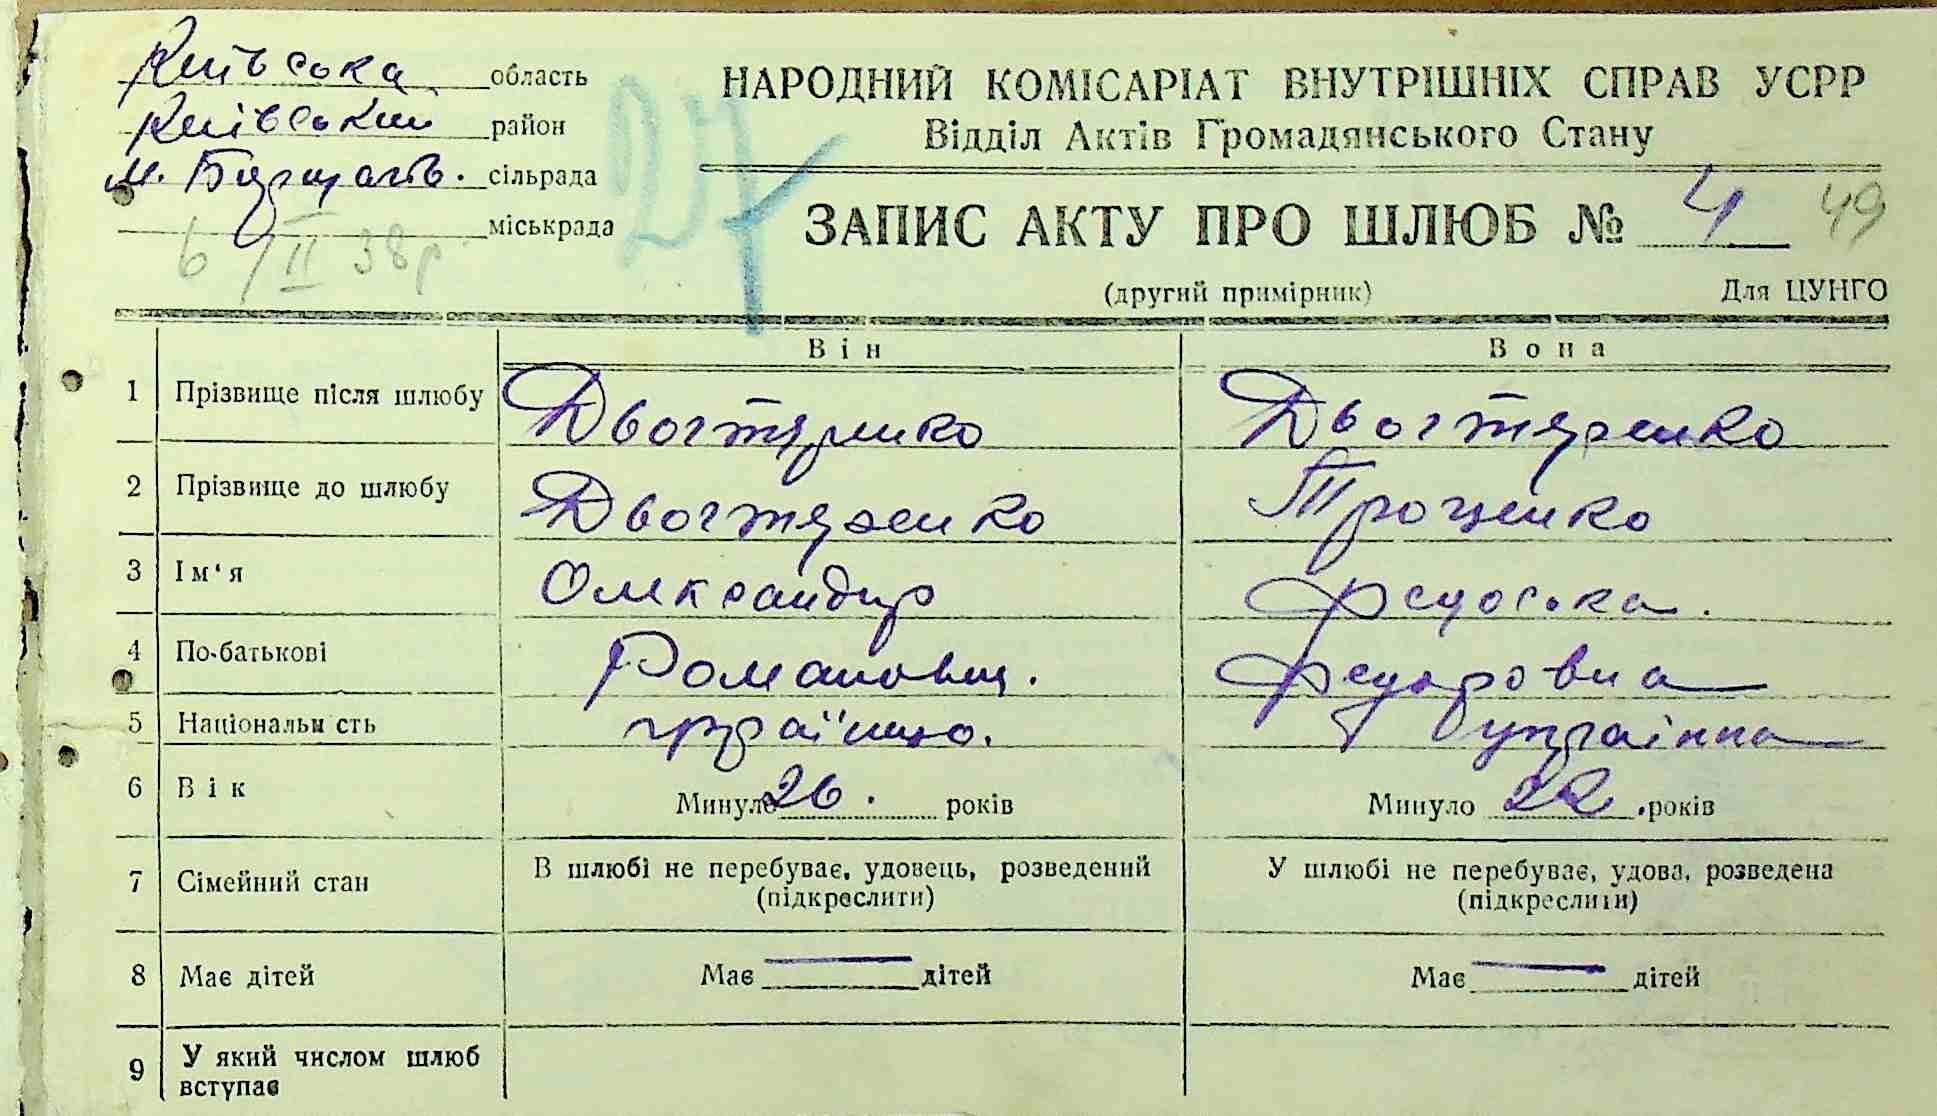 Київська область
Київський район
м. Борщагів. сільрада
міськрада
6/II 38 р
27
НАРОДНИЙ КОМІСАРІАТ ВНУТРІШНІХ СПРАВ УСРР
Відділ Актів Громадянського Стану
ЗАПИС АКТУ ПРО ШЛЮБ № 4 49
(другий примірник) Для ЦУНГО
Він Вона
1 Прізвище після шлюбу Двогтяренко Двогтяренко
2 Прізвище до шлюбу Двогтяренко Троценко
3 Ім‘я Олександр Федоська.
4 По-батькові Романович. Федоровна
5 Національн сть українць. українка
6 Вік Минуло 26. років Минуло 22. років
7 Сімейний стан В шлюбі не перебуває, удовець, розведений У шлюбі не перебуває, удова, розведена
(підкреслити) (підкреслити)
8 Має дітей Має — дітей Має — дітей
9 У який числом шлюб
вступає